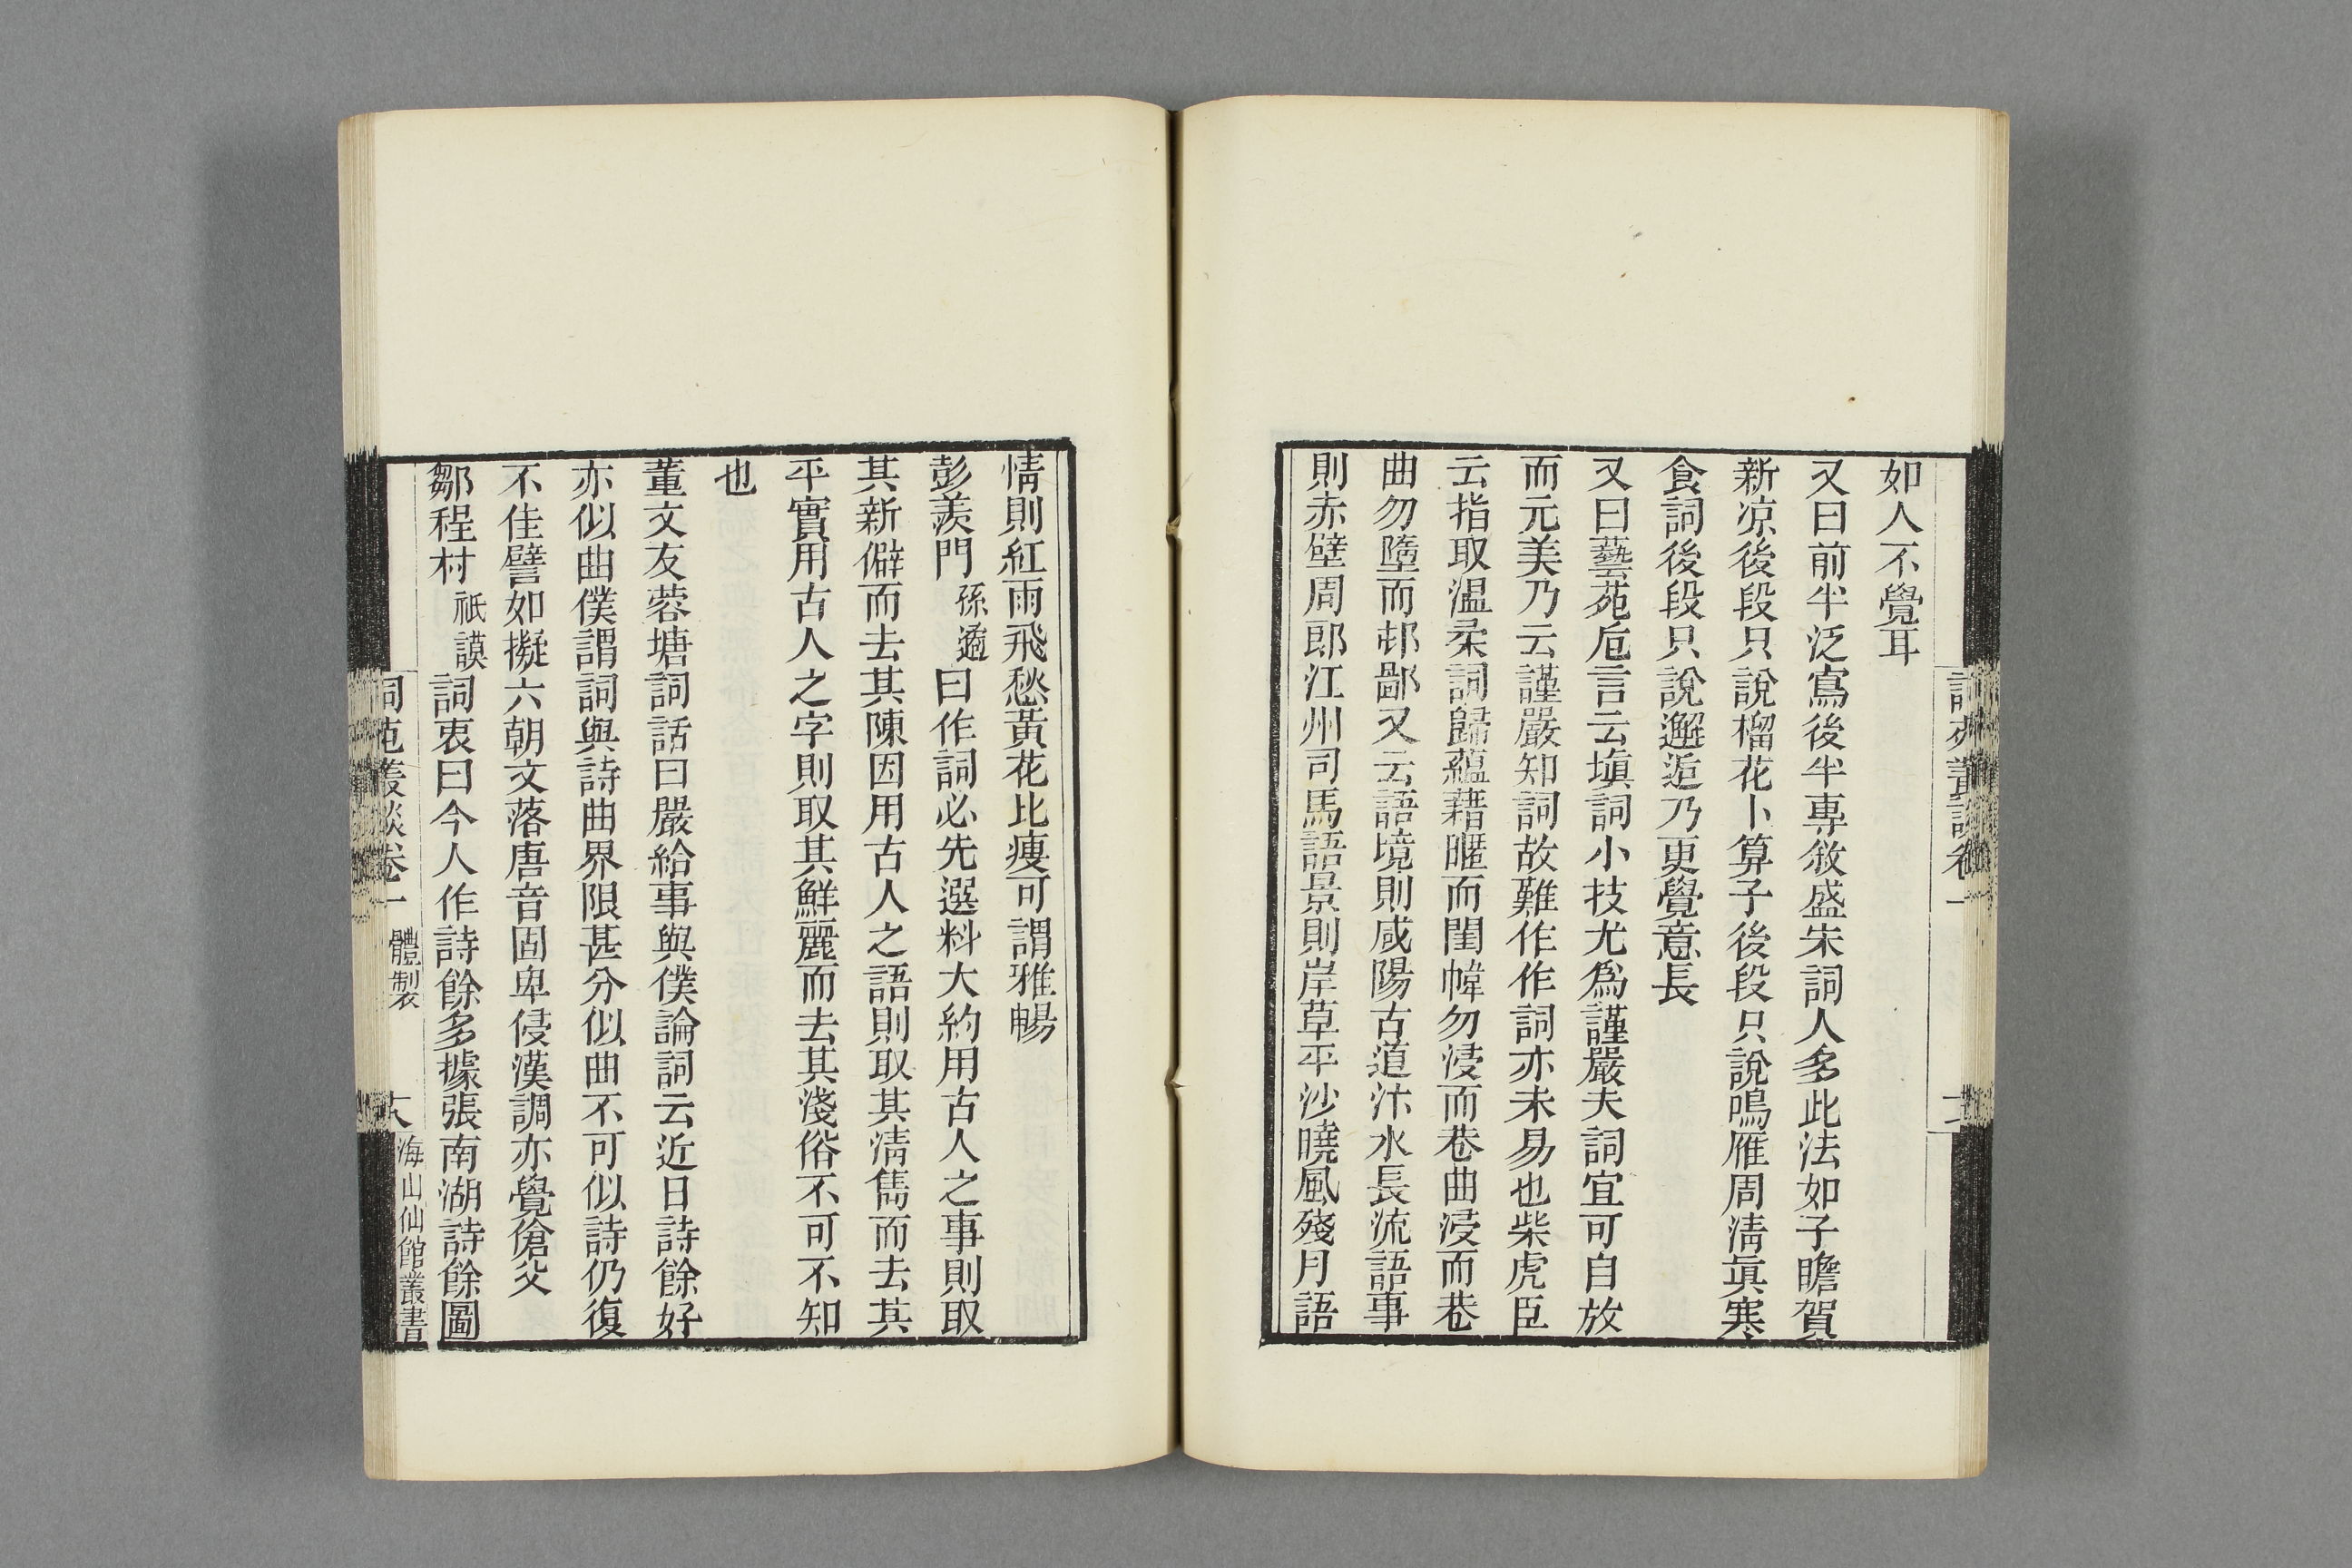 如人不覺耳
又曰前半泛寫後半專敘盛宋詞人多此法如子瞻賀
新凉後段只說榴花卜算子後段只說鳴雁周清真寒
食詞後段只說邂逅乃更覺意長
又曰藝苑卮言云塡詞小技尤爲謹嚴夫詞宜可自放
而元美乃云謹嚴知詞故難作作詞亦未易也柴虎臣
云指取溫柔詞歸蘊藉暱而閨幃勿浸而巷曲浸而巷
曲勿墮而邨鄙又云語境則咸陽古道汴水長流語事
則赤壁周郎江州司馬語景則岸草平沙曉風殘月語
情則紅雨飛愁黃花比瘦可謂雅暢
彭羨門孫遹曰作詞必先選料大約用古人之事則取
其新僻而去其陳因用古人之語則取其清雋而去其
平實用古人之字則取其鮮麗而去其淺俗不可不知
也
董文友蓉塘詞話曰嚴給事與僕論詞云近日詩餘好
亦似曲僕謂詞與詩曲界限甚分似曲不可似詩仍復
不佳譬如擬六朝文落唐音固卑侵漢調亦覺傖父
鄒程村祇謨詞衷曰今人作詩餘多據張南湖詩餘圖
詞苑叢談卷一 體製
海山仙館叢書